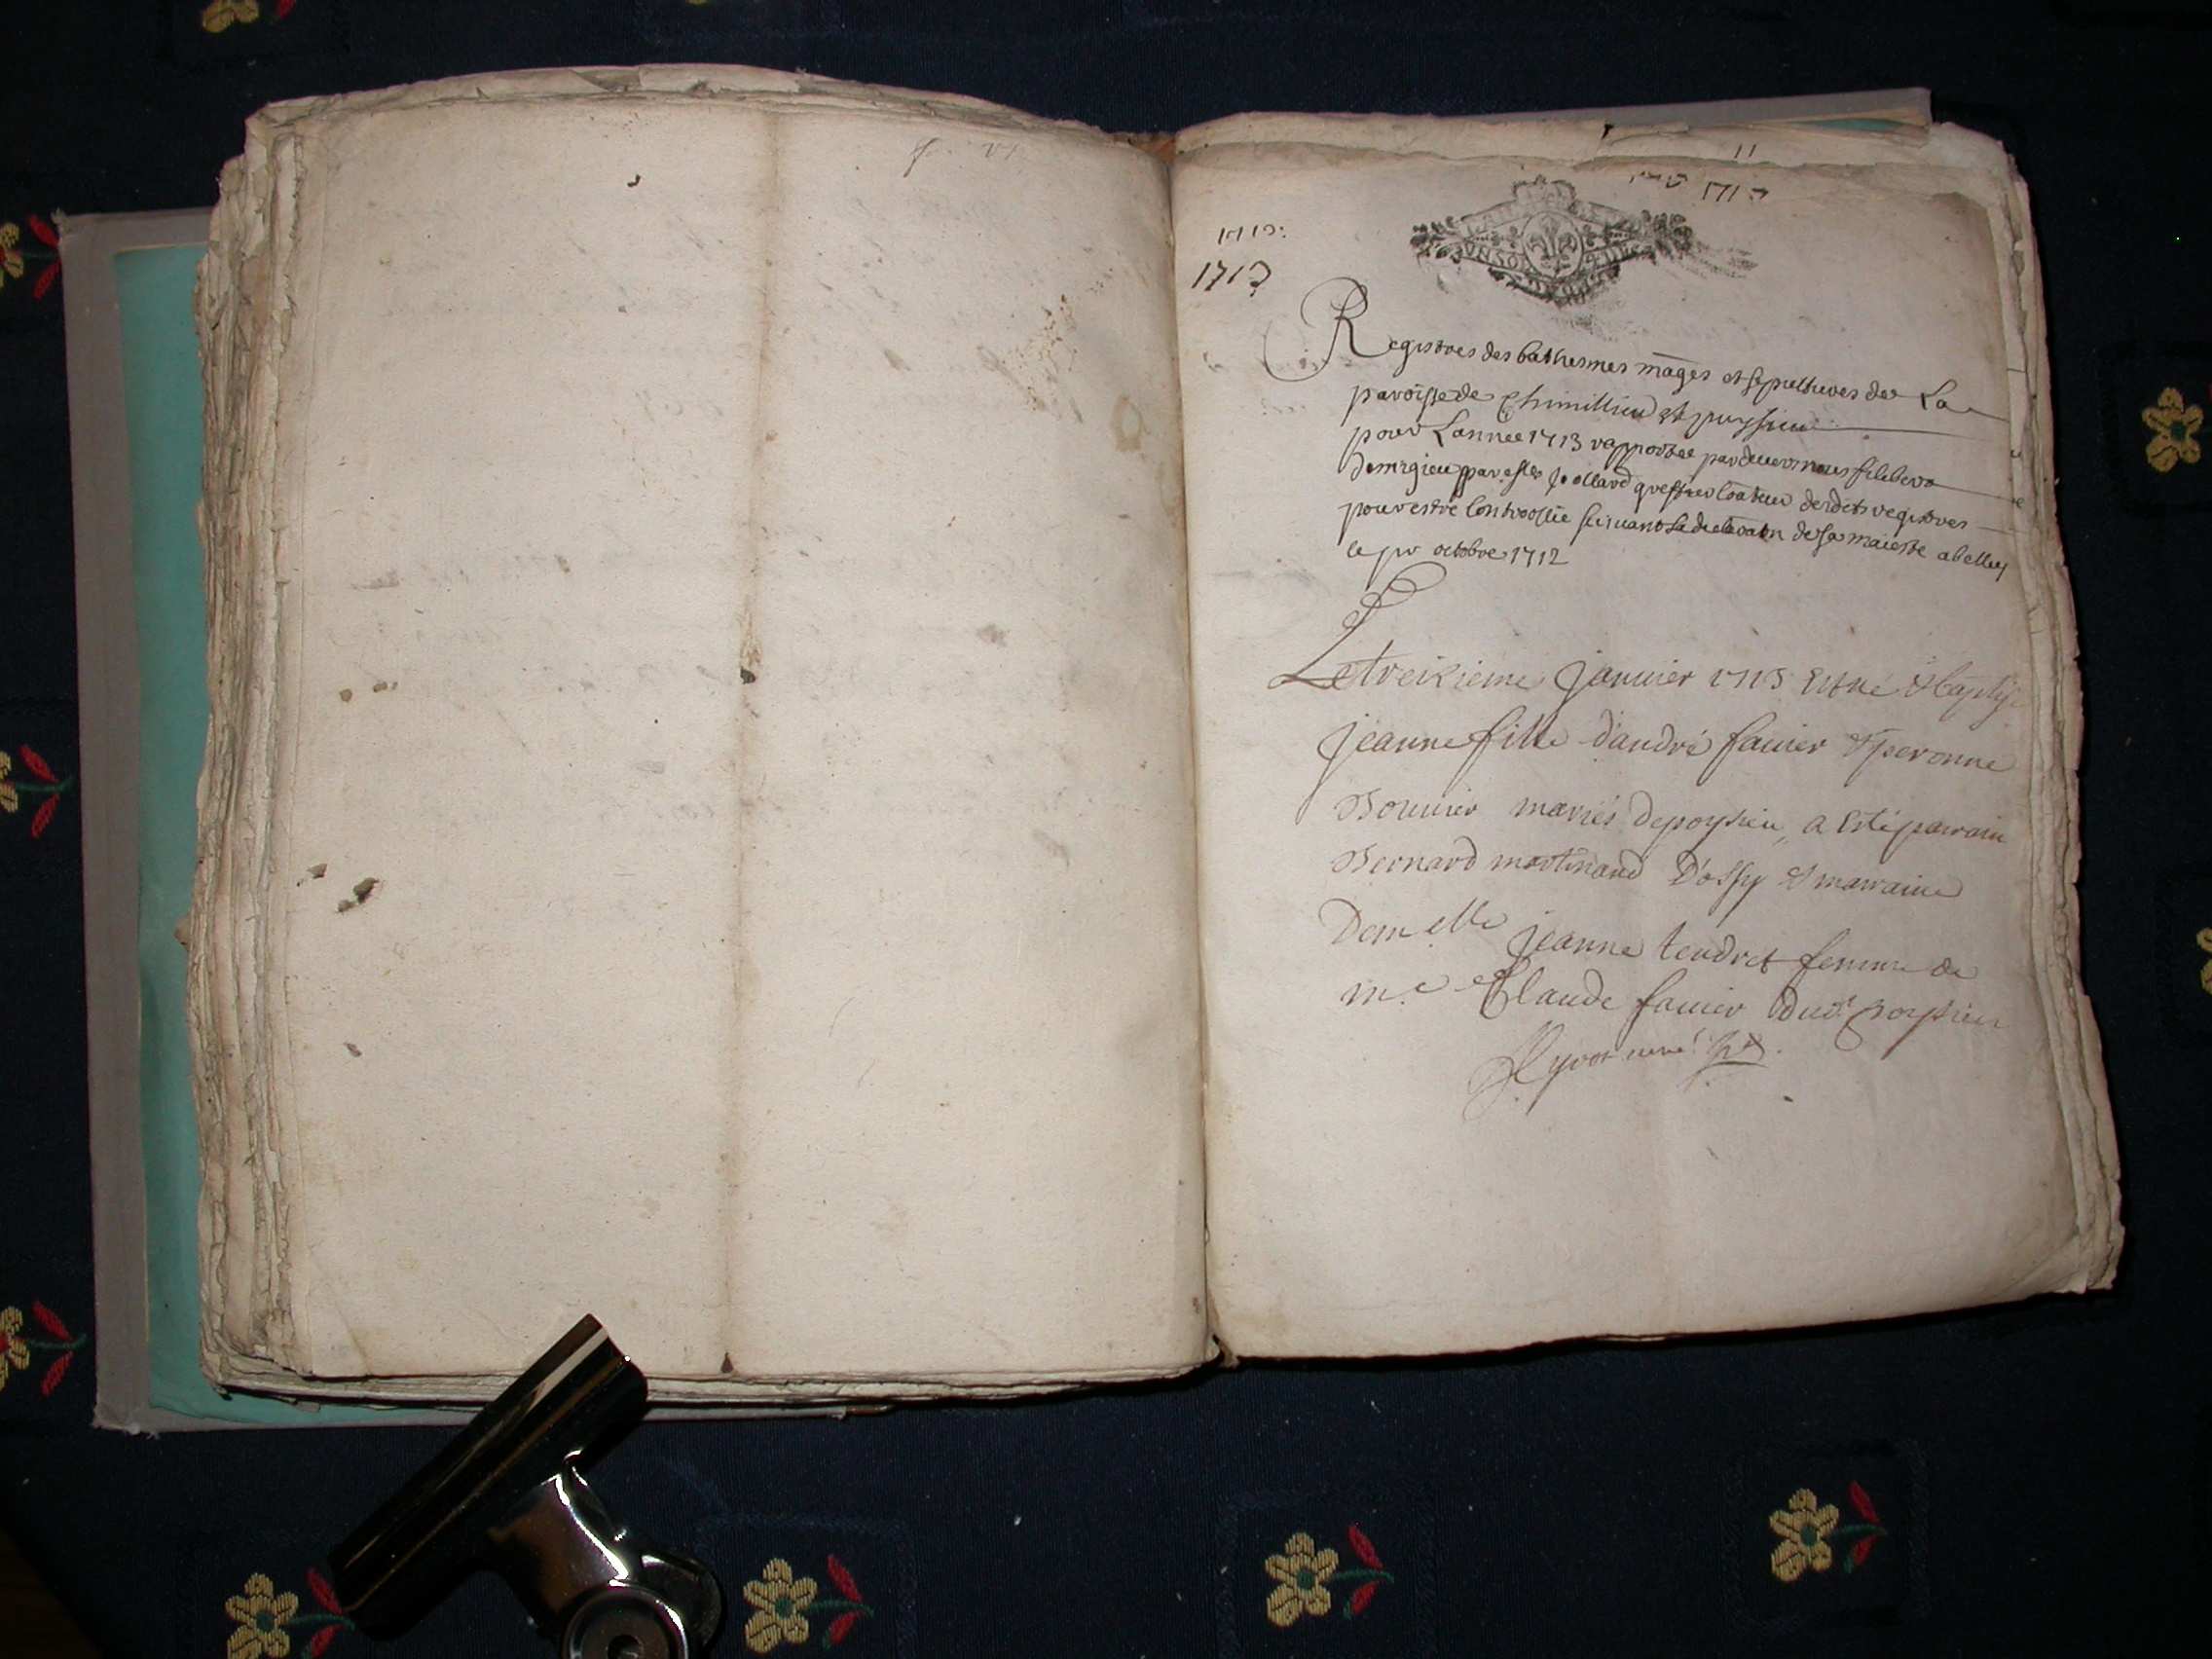 11
1713
1713
Registres des bathesmes mages et sepultures de La
paroisse de Chimillieu et puyssieu
pour Lannee 1713 rapportee pardevers nous filibert
Demrgieu par Jollard greffier desdits registres
pour estre controollé suivant la declaration de sa maieste abelley
le pr octobre 1712
Le treizieme Janvier 1713 Est né & baptisé
Jeanne fille d'andré favier & peronne
Bouvier mariés de poysieu, a Esté parrain
Bernard martinand D'ossy & marraine
Demelle jeanne tendret femme de
me Claude favier dud poysieu
Hyvot curé